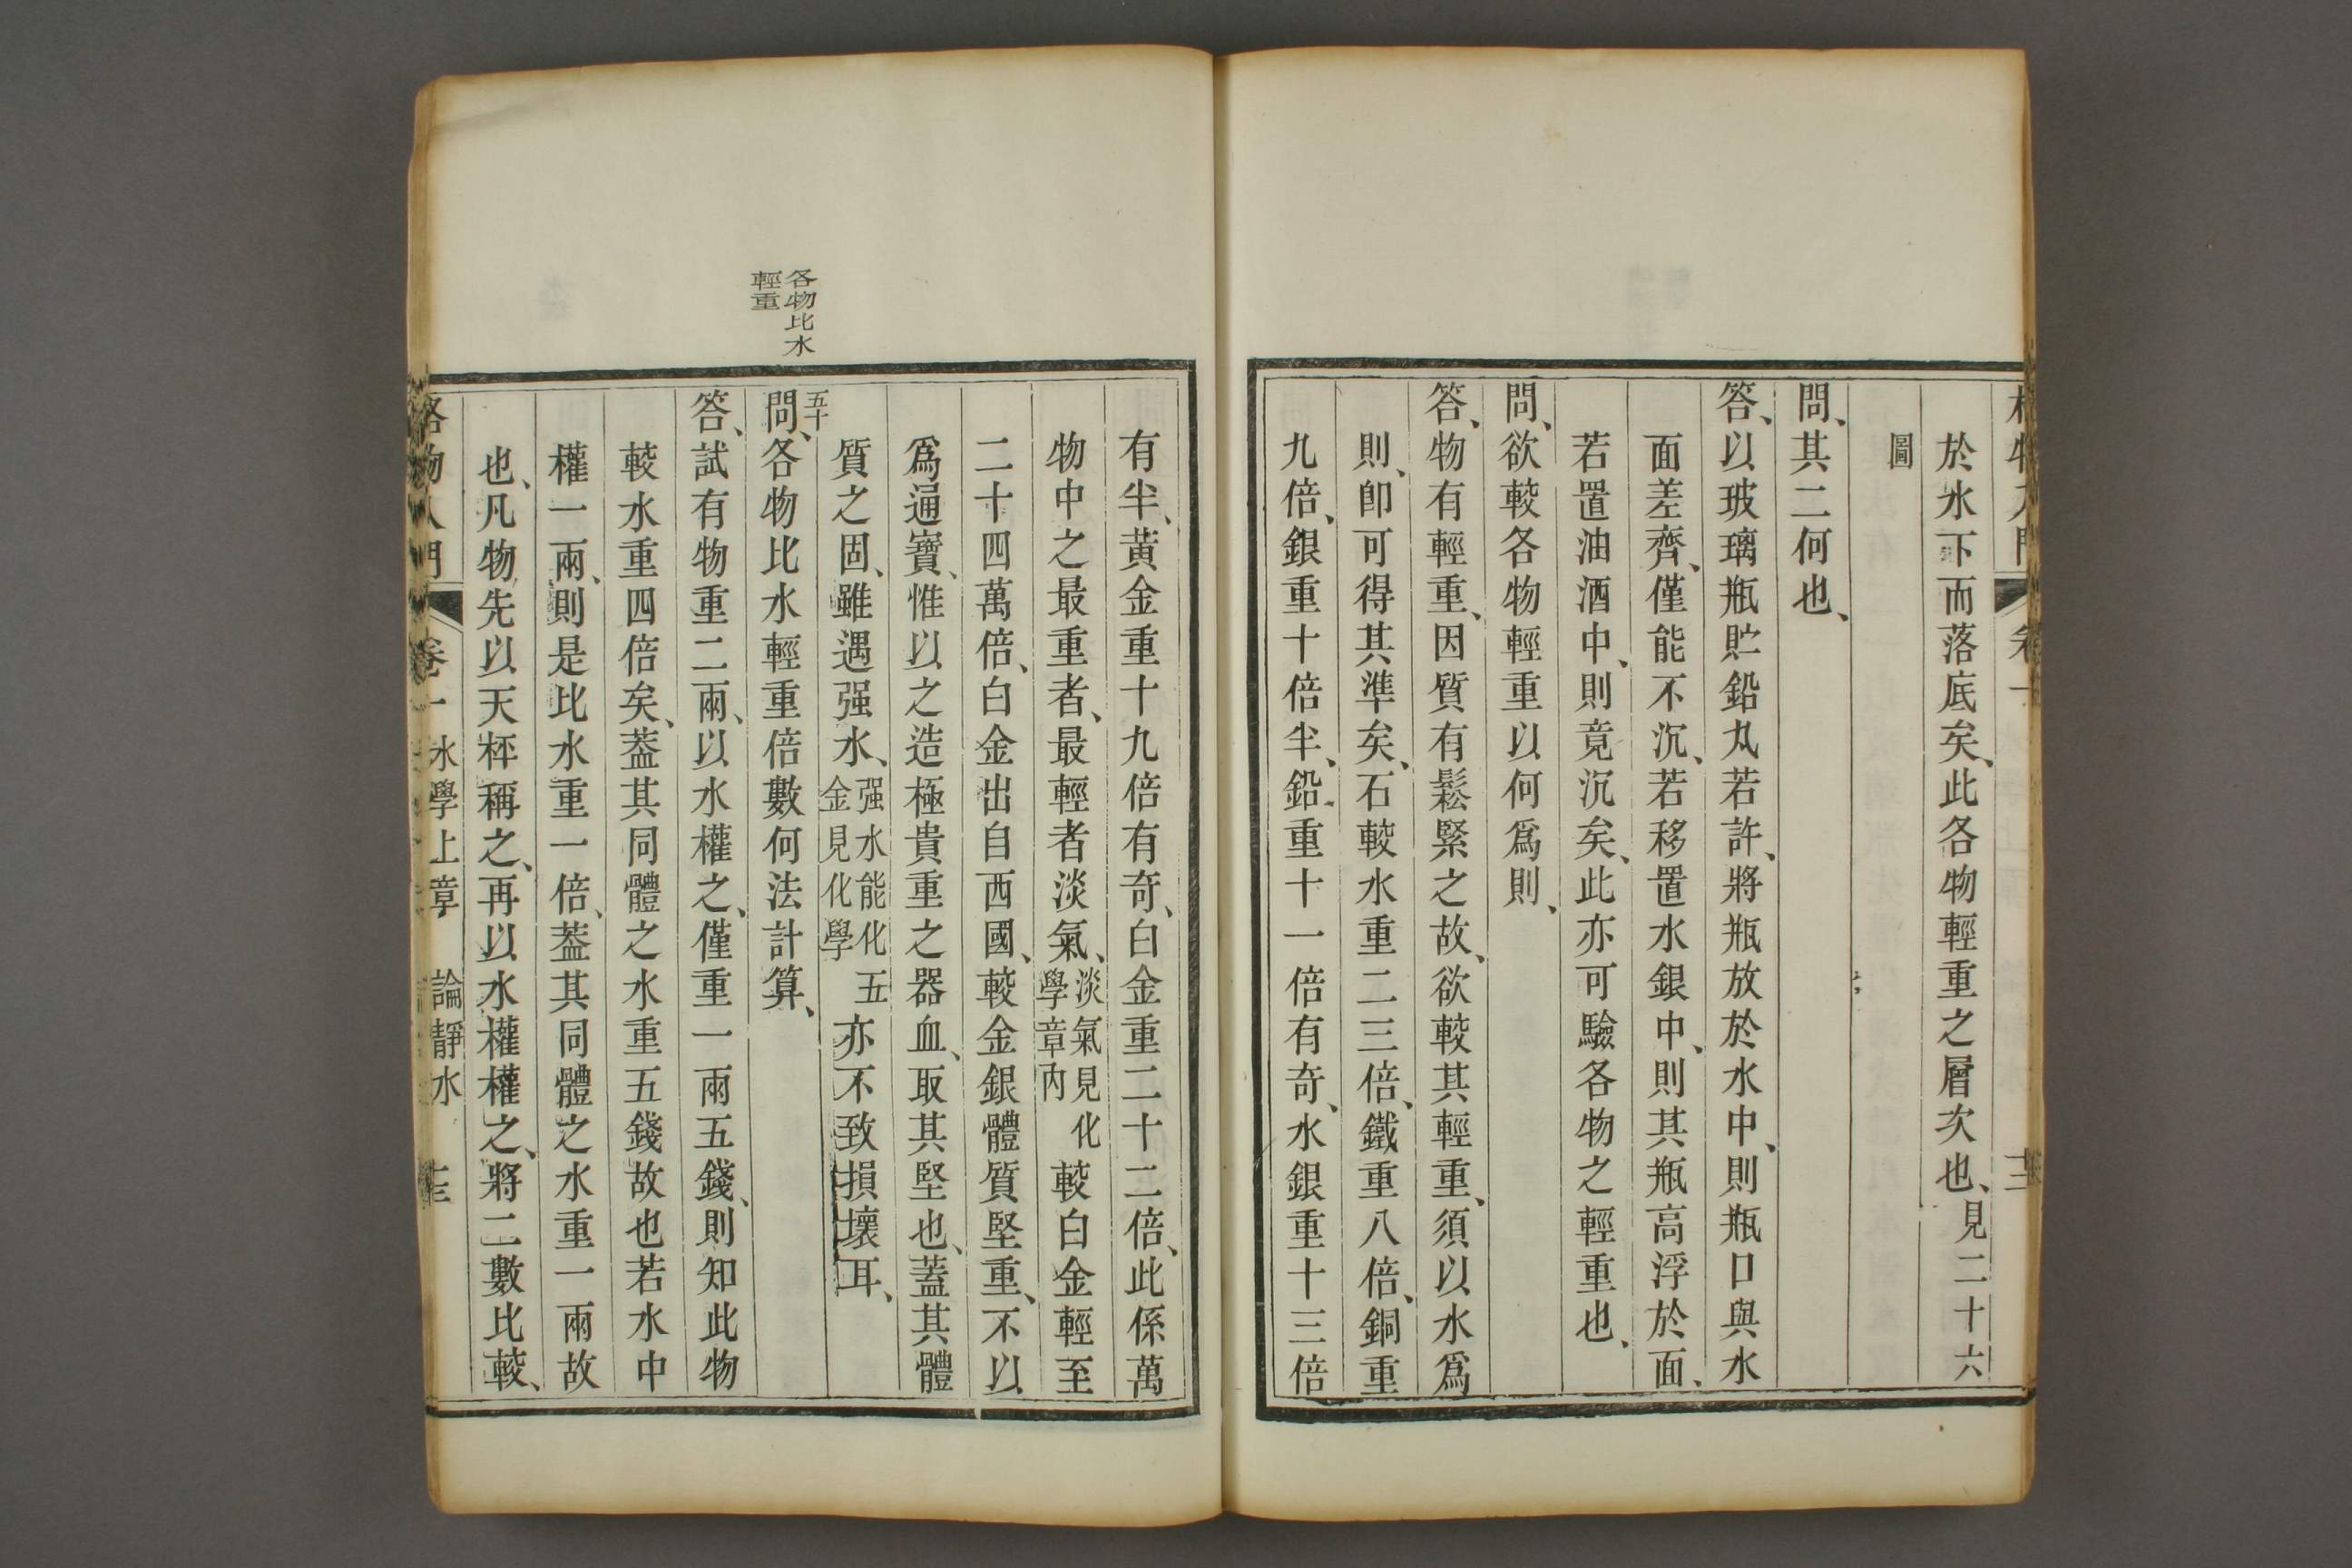 於水下而落底矣、此各物輕重之層次也、見二十六
圖
問、其二何也、
答、以玻璃瓶貯鉛丸若許、將瓶放於水中、則瓶口與水
面差齊、僅能不沉、若移置水銀中、則其瓶高浮於面、
若置油酒中、則竟沉矣、此亦可驗各物之輕重也、
問、欲較各物輕重以何爲則、
答、物有輕重、因質有鬆緊之故、欲較其輕重、須以水爲
則、卽可得其準矣、石較水重二三倍、鐵重八倍、銅重
九倍、銀重十倍半、鉛重十一倍有奇、水銀重十三倍
有半、黃金重十九倍有奇、白金重二十二倍、此係萬
物中之最重者、最輕者淡氣、淡氣見化學章內較白金輕至
二十四萬倍、白金出自西國、較金銀體質堅重、不以
爲通寶、惟以之造極貴重之器皿、取其堅也、蓋其體
質之固、雖遇强水、强水能化五金見化學亦不致損壞耳、
各物比水
輕重
五十
問、各物比水輕重倍數何法計算、
答、試有物重二兩、以水權之、僅重一兩五錢、則知此物
較水重四倍矣、葢其同體之水重五錢故也若水中
權一兩、則是比水重一倍、葢其同體之水重一兩故
也、凡物先以天秤稱之、再以水權權之、將二數比較、
格物入門 卷一 水學上章 論靜水